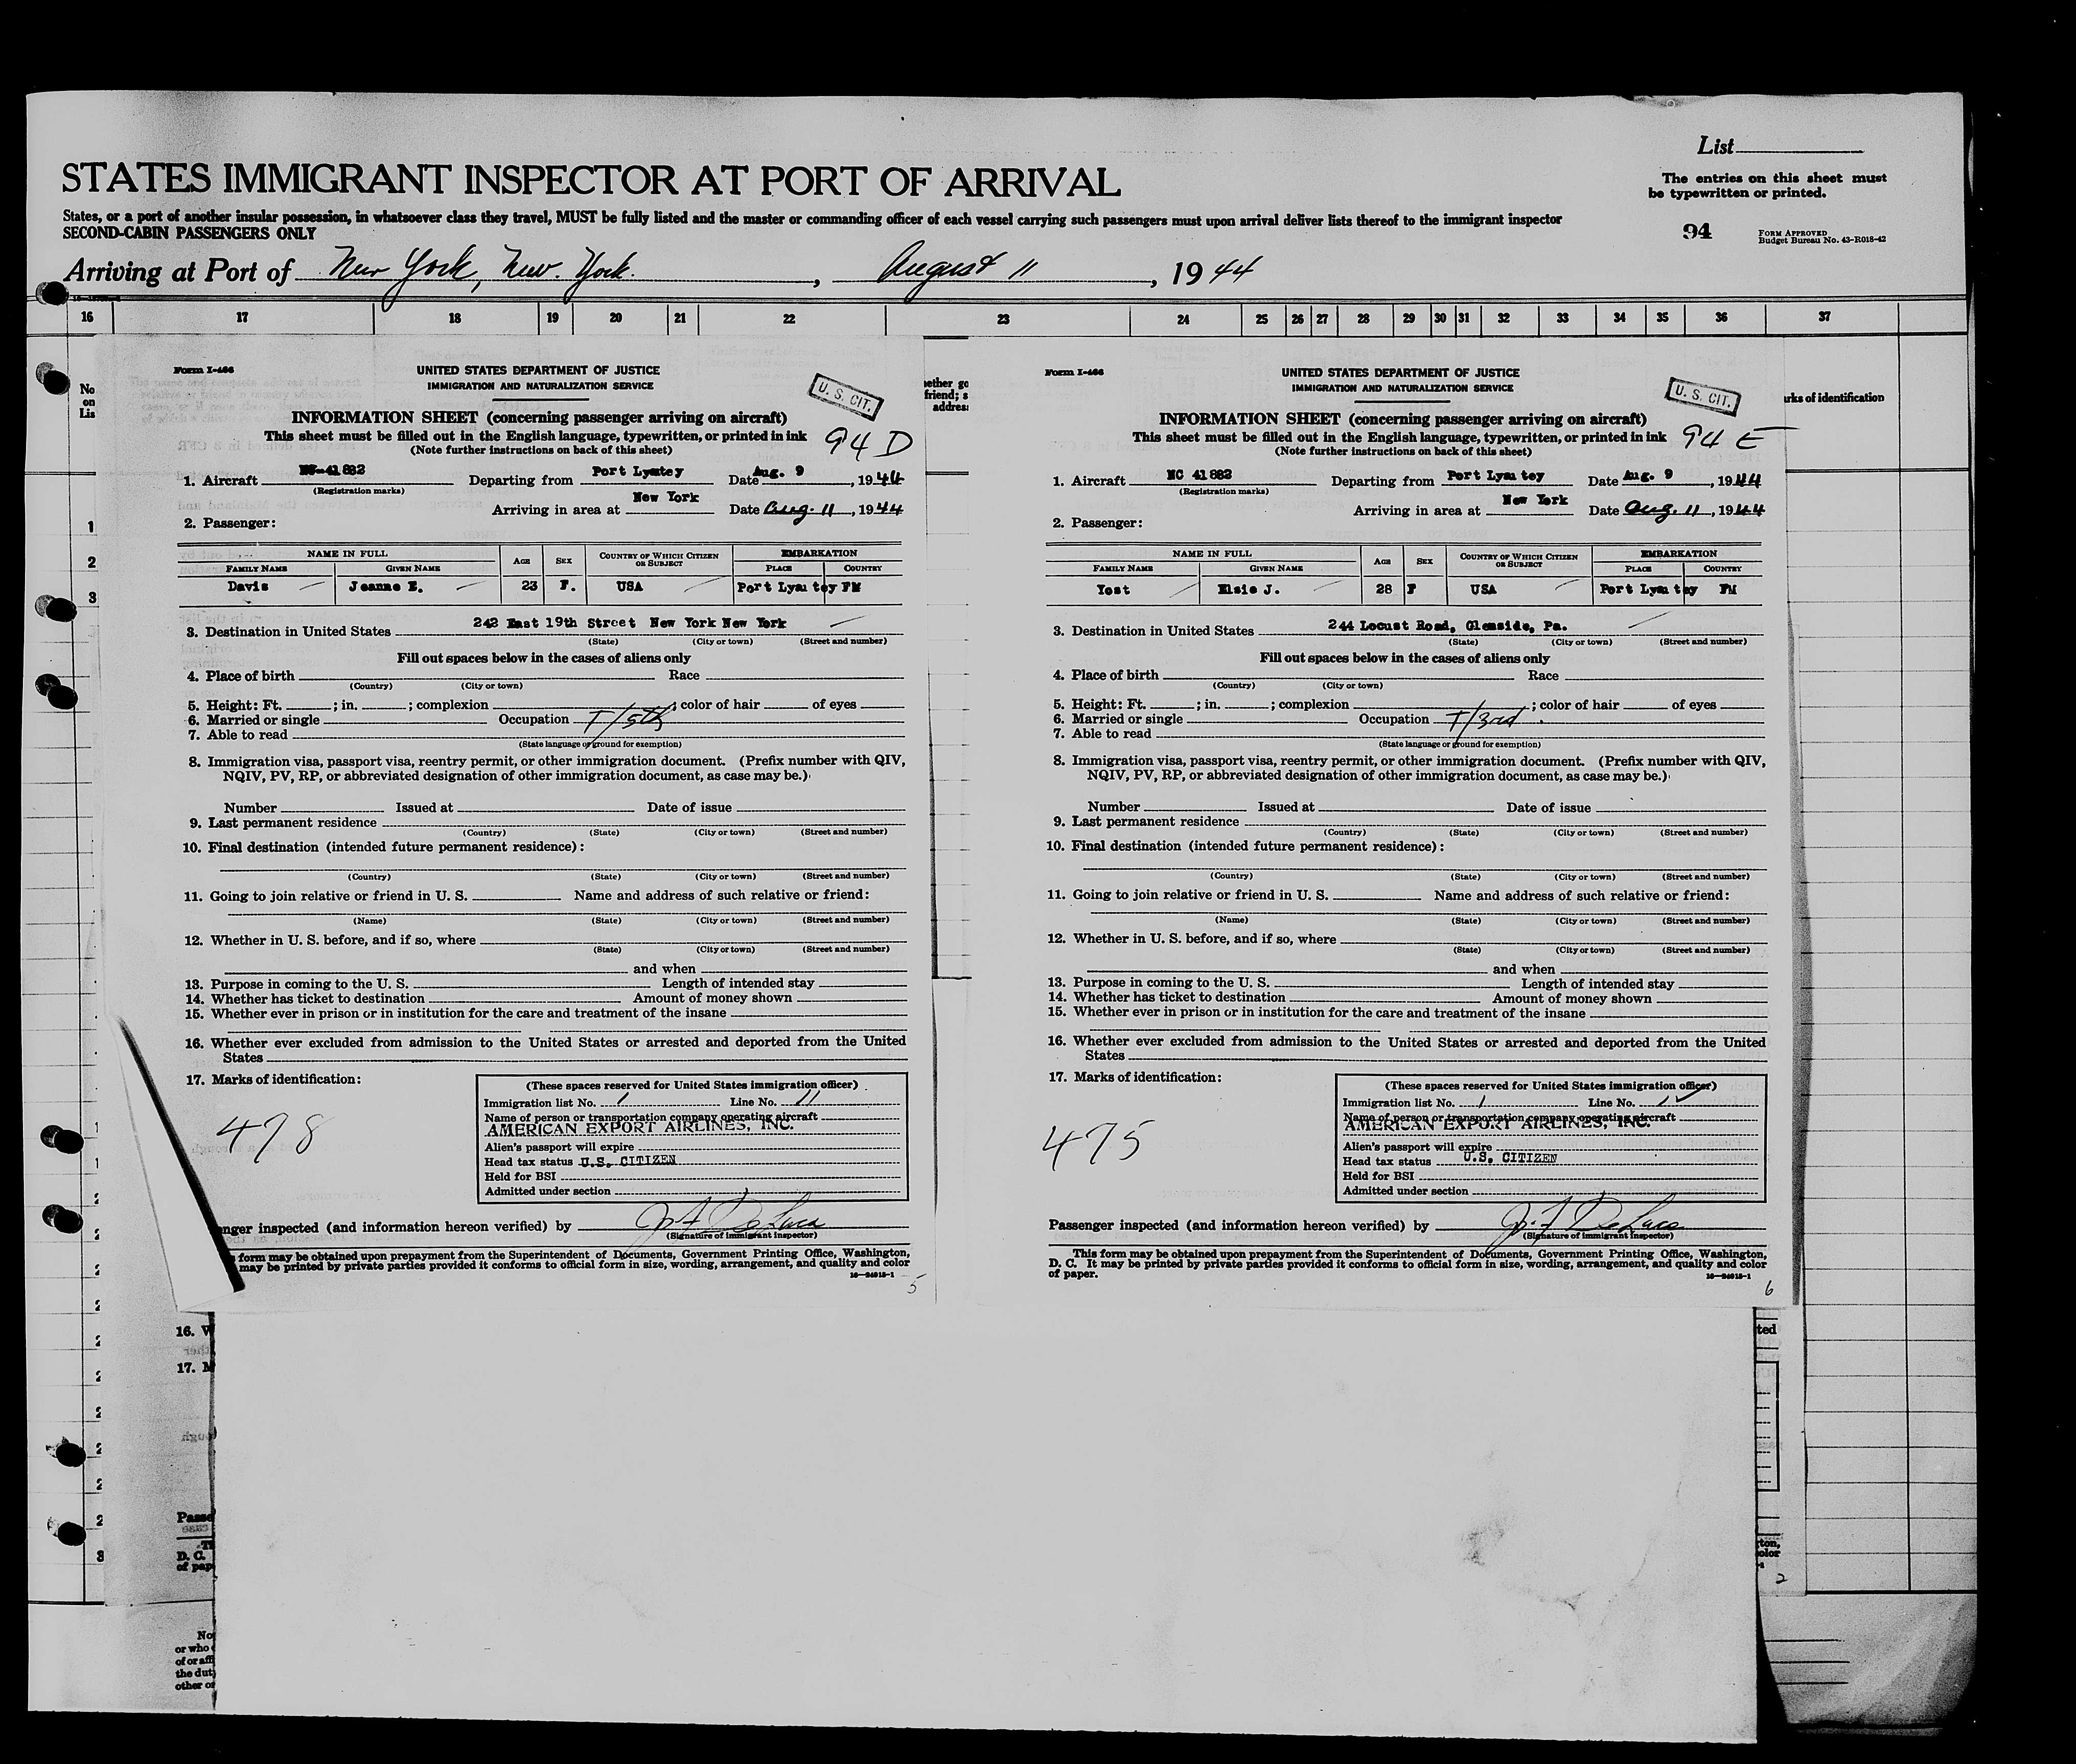 List
STATES IMMIGRANT INSPECTOR AT PORT OF ARRIVAL
The entries on this sheet must
be typewritten or printed.
States, or a port of another insular possession, in whatsoever class they travel, MUST be fully listed and the master or commanding officer of each vessel carrying such passengers must upon arrival deliver lists thereof to the immigrant inspector
SECOND-CABIN PASSENGERS ONLY
94 FORM APPROVED
Budget Bureau No. 43-R018-42
Arriving at Port of New York, New York, August 11, 1944
16 17 18 19 20 21 22 23 24 25 26 27 28 29 30 31 32 33 34 35 36 37
No
on
Lis
1
2
3
Form I-466
UNITED STATES DEPARTMENT OF JUSTICE
IMMIGRATION AND NATURALIZATION SERVICE
U. S. CIT.
INFORMATION SHEET (concerning passenger arriving on aircraft)
This sheet must be filled out in the English language, typewritten, or printed in ink 94 D
(Note further instructions on back of this sheet)
1. Aircraft 41882 Departing from Port Lyautey Date Aug. 9, 1944
(Registration marks)
Arriving in area at New York Date Aug. 11, 1944
2. Passenger:
NAME IN FULL AGE SEX COUNTRY OF WHICH CITIZEN OR SUBJECT EMBARKATION
FAMILY NAME GIVEN NAME PLACE COUNTRY
Davis Jeanne E. 23 F. USA Port Lyautey FM
3. Destination in United States 242 East 19th Street New York New York
(State) (City or town) (Street and number)
Fill out spaces below in the cases of aliens only
4. Place of birth Race
(Country) (City or town)
5. Height: Ft. ; in. ; complexion ; color of hair of eyes
6. Married or single Occupation T/5th
7. Able to read
(State language or ground for exemption)
8. Immigration visa, passport visa, reentry permit, or other immigration document. (Prefix number with QIV,
NQIV, PV, RP, or abbreviated designation of other immigration document, as case may be.)
Number Issued at Date of issue
9. Last permanent residence
(Country) (State) (City or town) (Street and number)
10. Final destination (intended future permanent residence):
(Country) (State) (City or town) (Street and number)
11. Going to join relative or friend in U. S. Name and address of such relative or friend:
(Name) (State) (City or town) (Street and number)
12. Whether in U. S. before, and if so, where
(State) (City or town) (Street and number)
and when
13. Purpose in coming to the U. S. Length of intended stay
14. Whether has ticket to destination Amount of money shown
15. Whether ever in prison or in institution for the care and treatment of the insane
16. Whether ever excluded from admission to the United States or arrested and deported from the United
States
17. Marks of identification:
478
(These spaces reserved for United States immigration officer)
Immigration list No. 1 Line No. 11
Name of person or transportation company operating aircraft
AMERICAN EXPORT AIRLINES, INC.
Alien's passport will expire
Head tax status U.S. CITIZEN
Held for BSI
Admitted under section
nger inspected (and information hereon verified) by J. F. DeLuca
(Signature of immigrant inspector)
form may be obtained upon prepayment from the Superintendent of Documents, Government Printing Office, Washington,
may be printed by private parties provided it conforms to official form in size, wording, arrangement, and quality and color
16—24915-1
5
ether go
friend; s
addres
Form I-466
UNITED STATES DEPARTMENT OF JUSTICE
IMMIGRATION AND NATURALIZATION SERVICE
U. S. CIT.
rks of identification
INFORMATION SHEET (concerning passenger arriving on aircraft)
This sheet must be filled out in the English language, typewritten, or printed in ink 94 E
(Note further instructions on back of this sheet)
1. Aircraft NC 41882 Departing from Port Lyautey Date Aug. 9, 1944
(Registration marks)
Arriving in area at New York Date Aug. 11, 1944
2. Passenger:
NAME IN FULL AGE SEX COUNTRY OF WHICH CITIZEN OR SUBJECT EMBARKATION
FAMILY NAME GIVEN NAME PLACE COUNTRY
Yost Elsie J. 28 F USA Port Lyautey FM
3. Destination in United States 244 Locust Road, Glenside, Pa.
(State) (City or town) (Street and number)
Fill out spaces below in the cases of aliens only
4. Place of birth Race
(Country) (City or town)
5. Height: Ft. ; in. ; complexion ; color of hair of eyes
6. Married or single Occupation T/3rd.
7. Able to read
(State language or ground for exemption)
8. Immigration visa, passport visa, reentry permit, or other immigration document. (Prefix number with QIV,
NQIV, PV, RP, or abbreviated designation of other immigration document, as case may be.)
Number Issued at Date of issue
9. Last permanent residence
(Country) (State) (City or town) (Street and number)
10. Final destination (intended future permanent residence):
(Country) (State) (City or town) (Street and number)
11. Going to join relative or friend in U. S. Name and address of such relative or friend:
(Name) (State) (City or town) (Street and number)
12. Whether in U. S. before, and if so, where
(State) (City or town) (Street and number)
and when
13. Purpose in coming to the U. S. Length of intended stay
14. Whether has ticket to destination Amount of money shown
15. Whether ever in prison or in institution for the care and treatment of the insane
16. Whether ever excluded from admission to the United States or arrested and deported from the United
States
17. Marks of identification:
475
(These spaces reserved for United States immigration officer)
Immigration list No. 1 Line No.
Name of person or transportation company operating aircraft
AMERICAN EXPORT AIRLINES, INC.
Alien's passport will expire
Head tax status U.S. CITIZEN
Held for BSI
Admitted under section
Passenger inspected (and information hereon verified) by J. F. DeLuca
(Signature of immigrant inspector)
This form may be obtained upon prepayment from the Superintendent of Documents, Government Printing Office, Washington,
D. C. It may be printed by private parties provided it conforms to official form in size, wording, arrangement, and quality and color
of paper.
16—24915-1
6
16. W
17. M
Passe
D. C.
of pap
No
or who
of or aff
the dut
other or
ted
ton,
olor
2